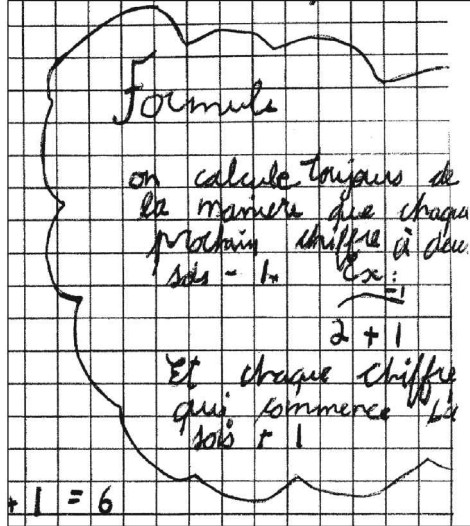 Formule
on calcule toujours de
la maniere que chaque
prochain chiffre à deux
sois - 1. Ex:
-1
2 + 1
Et chaque chiffre
qui commence
sois + 1
+ 1 = 6